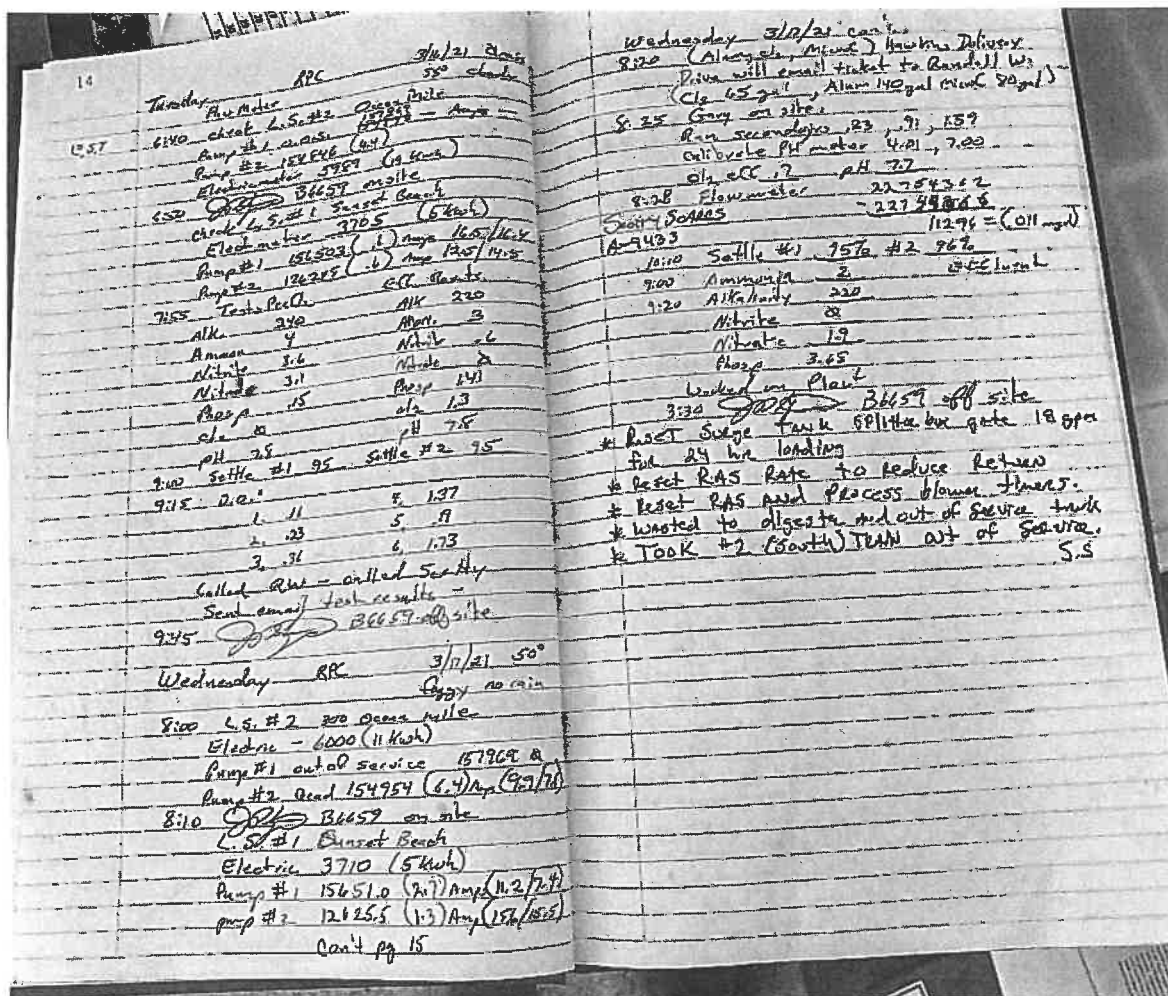 14
Tuesday RPC 3/16/21
58° cloudy
6:40 check L.S. #2 Ocean Mile
Pump #1 o.o.s. — Amps —
Pump #2 154846 (4.4)
Electric meter 5989 (19 Kwh)
6:50 B6659 on site
check L.S. #1 Sunset Beach
Elect meter 3705 (5 kwh)
Pump #1 156503 (.1) Amps 16.5/16.4
Pump #2 126245 (.6) Amp 12.5/14.5
7:55 Tests Eff. Results
Alk. 240 Alk 220
Ammon 4 Amm. 3
Nitrite 3.6 Nitrite .6
Nitrate 3.1 Nitrate
Phosp .15 Phosp 1.43
1.3
pH 7.5 pH 7.8
9:00 Settle #1 95 Settle #2 95
9:15 D.O.
1. .11 4. 1.37
2. .23 5. .19
3. .36 6. 1.73
Called RW - called Scotty
Sent email test results -
9:45 B6659 off site
Wednesday RPC 3/17/21 50°
foggy no rain
8:00 L.S. #2 Ocean mile
Electric - 6000 (11 Kwh)
Pump #1 out of service 157969
Pump #2 Read 154954 (6.4) Amp (9.9/7.8)
8:10 B6659 on site
L.S. #1 Sunset Beach
Electric 3710 (5 kwh)
Pump #1 15651.0 (2.7) Amps (11.2/7.4)
pump #2 12625.5 (1.3) Amp (15.6/15.5)
Con't pg 15
Wednesday 3/17/21 con't
8:20 (Alum, cl2, MicroC) Hawkins Delivery
Driver will email ticket to Randall W.
(Cl2 65 gal, Alum 140 gal MicroC 80 gal)
8:25 Gary on site.
Ran secondaries .23, .91, 1.59
Calibrate PH meter 4.01, 7.00
eff .2 pH 7.7
8:28 Flowmeter 22754362
11296 = (.011 mgd)
Scotty Soares
A-9433
10:10 Settle #1 95% #2 96%
9:00 Ammonia 2 effluent
9:20 Alkalinity 220
Nitrite
Nitrate 1.9
Phosp 3.65
Worked on Plant
3:30 B6659 off site
* Reset Surge tank splitter box gate 18 gpm
for 24 hr loading
* Reset RAS Rate to Reduce Return
* Reset RAS and Process blower timers.
* Wasted to digester and out of service tank
* Took #2 (South) TRAIN out of Service.
S.S